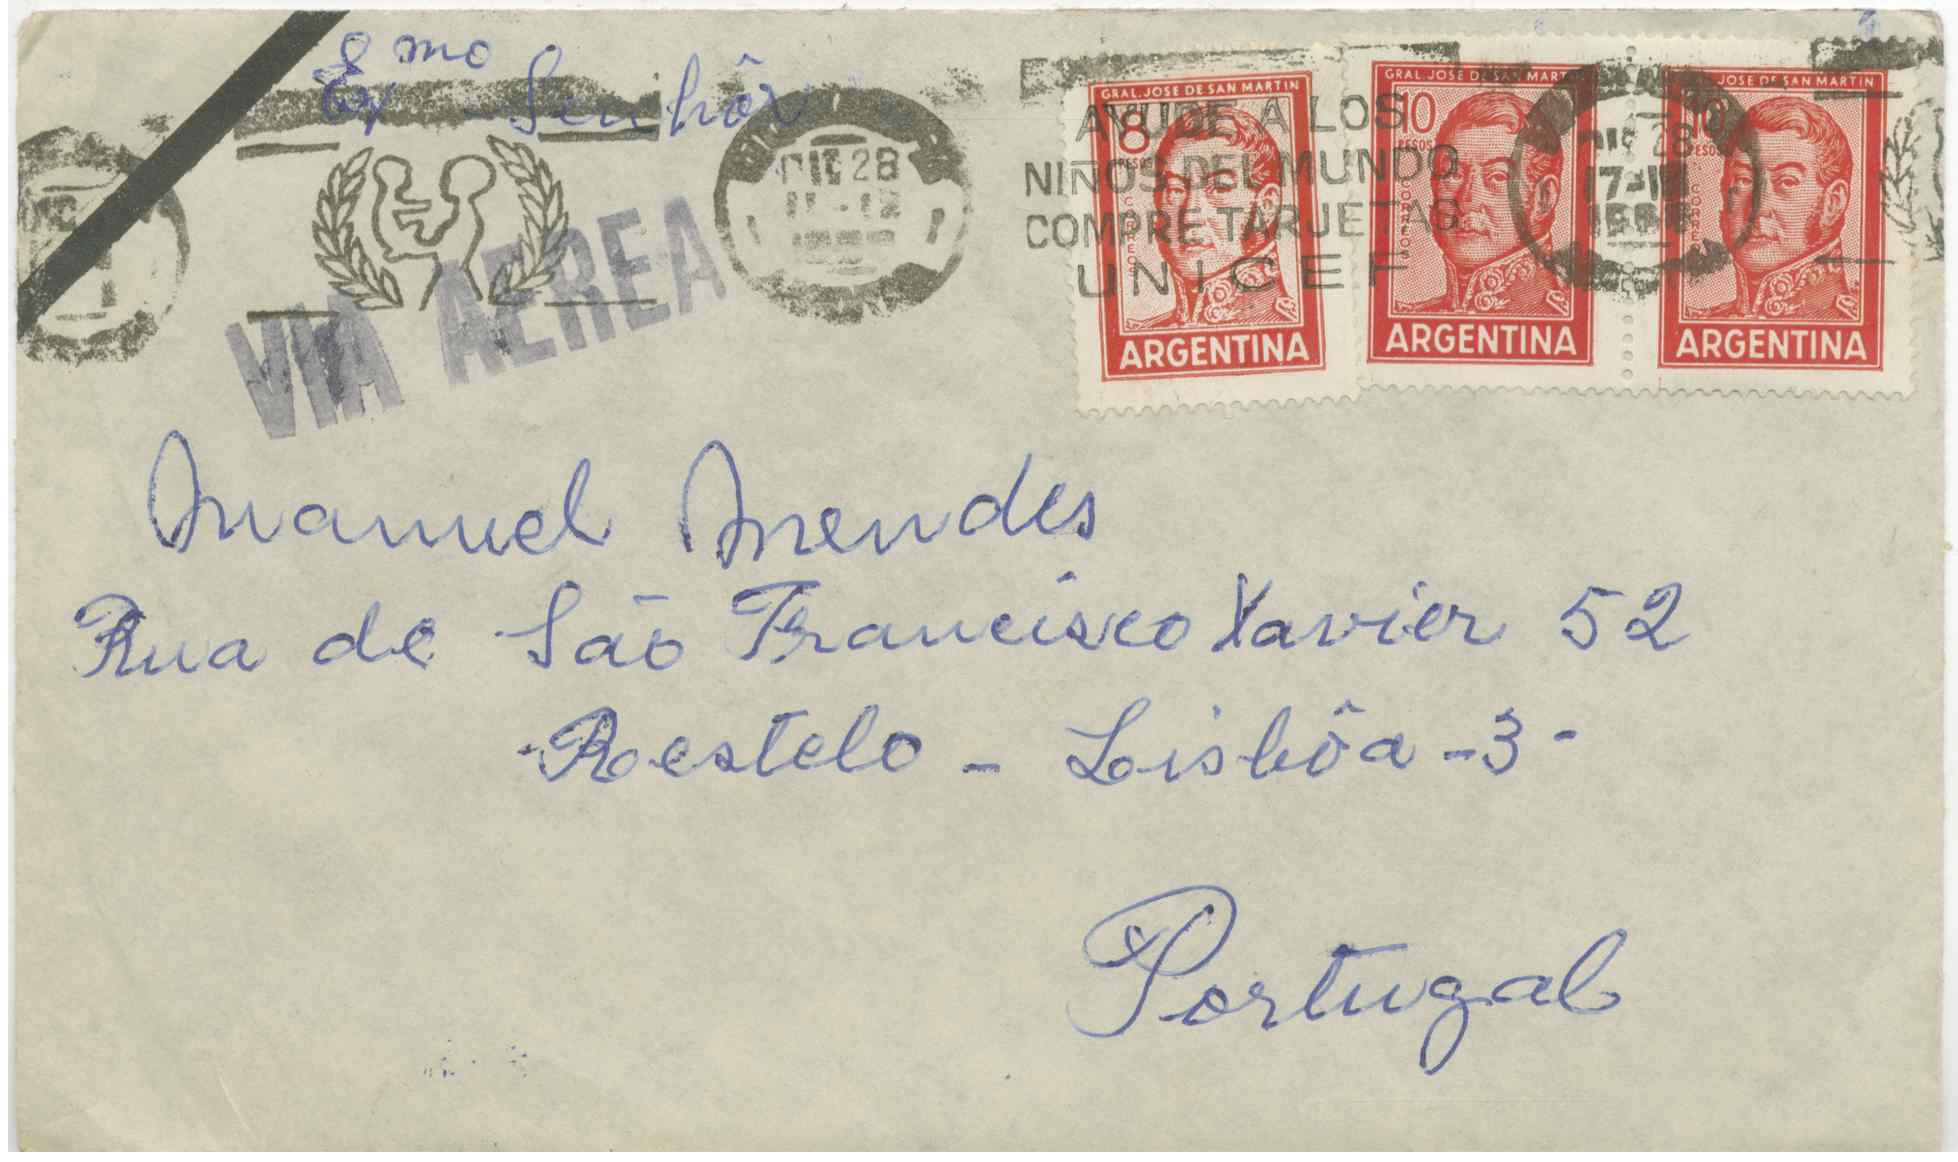 Exmo Senhôr
DIC 28
VIA AEREA
AYUDE A LOS
NIÑOS DEL MUNDO
COMPRE TARJETAS
UNICEF
GRAL. JOSE DE SAN MARTIN
8
PESOS
CORREOS
ARGENTINA
GRAL. JOSE DE SAN MARTIN
10
PESOS
CORREOS
ARGENTINA
JOSE DE SAN MARTIN
10
PESOS
CORREOS
ARGENTINA
DIC 28
Manuel Mendes
Rua de São Francisco Xavier 52
Restelo - Lisbôa - 3 -
Portugal